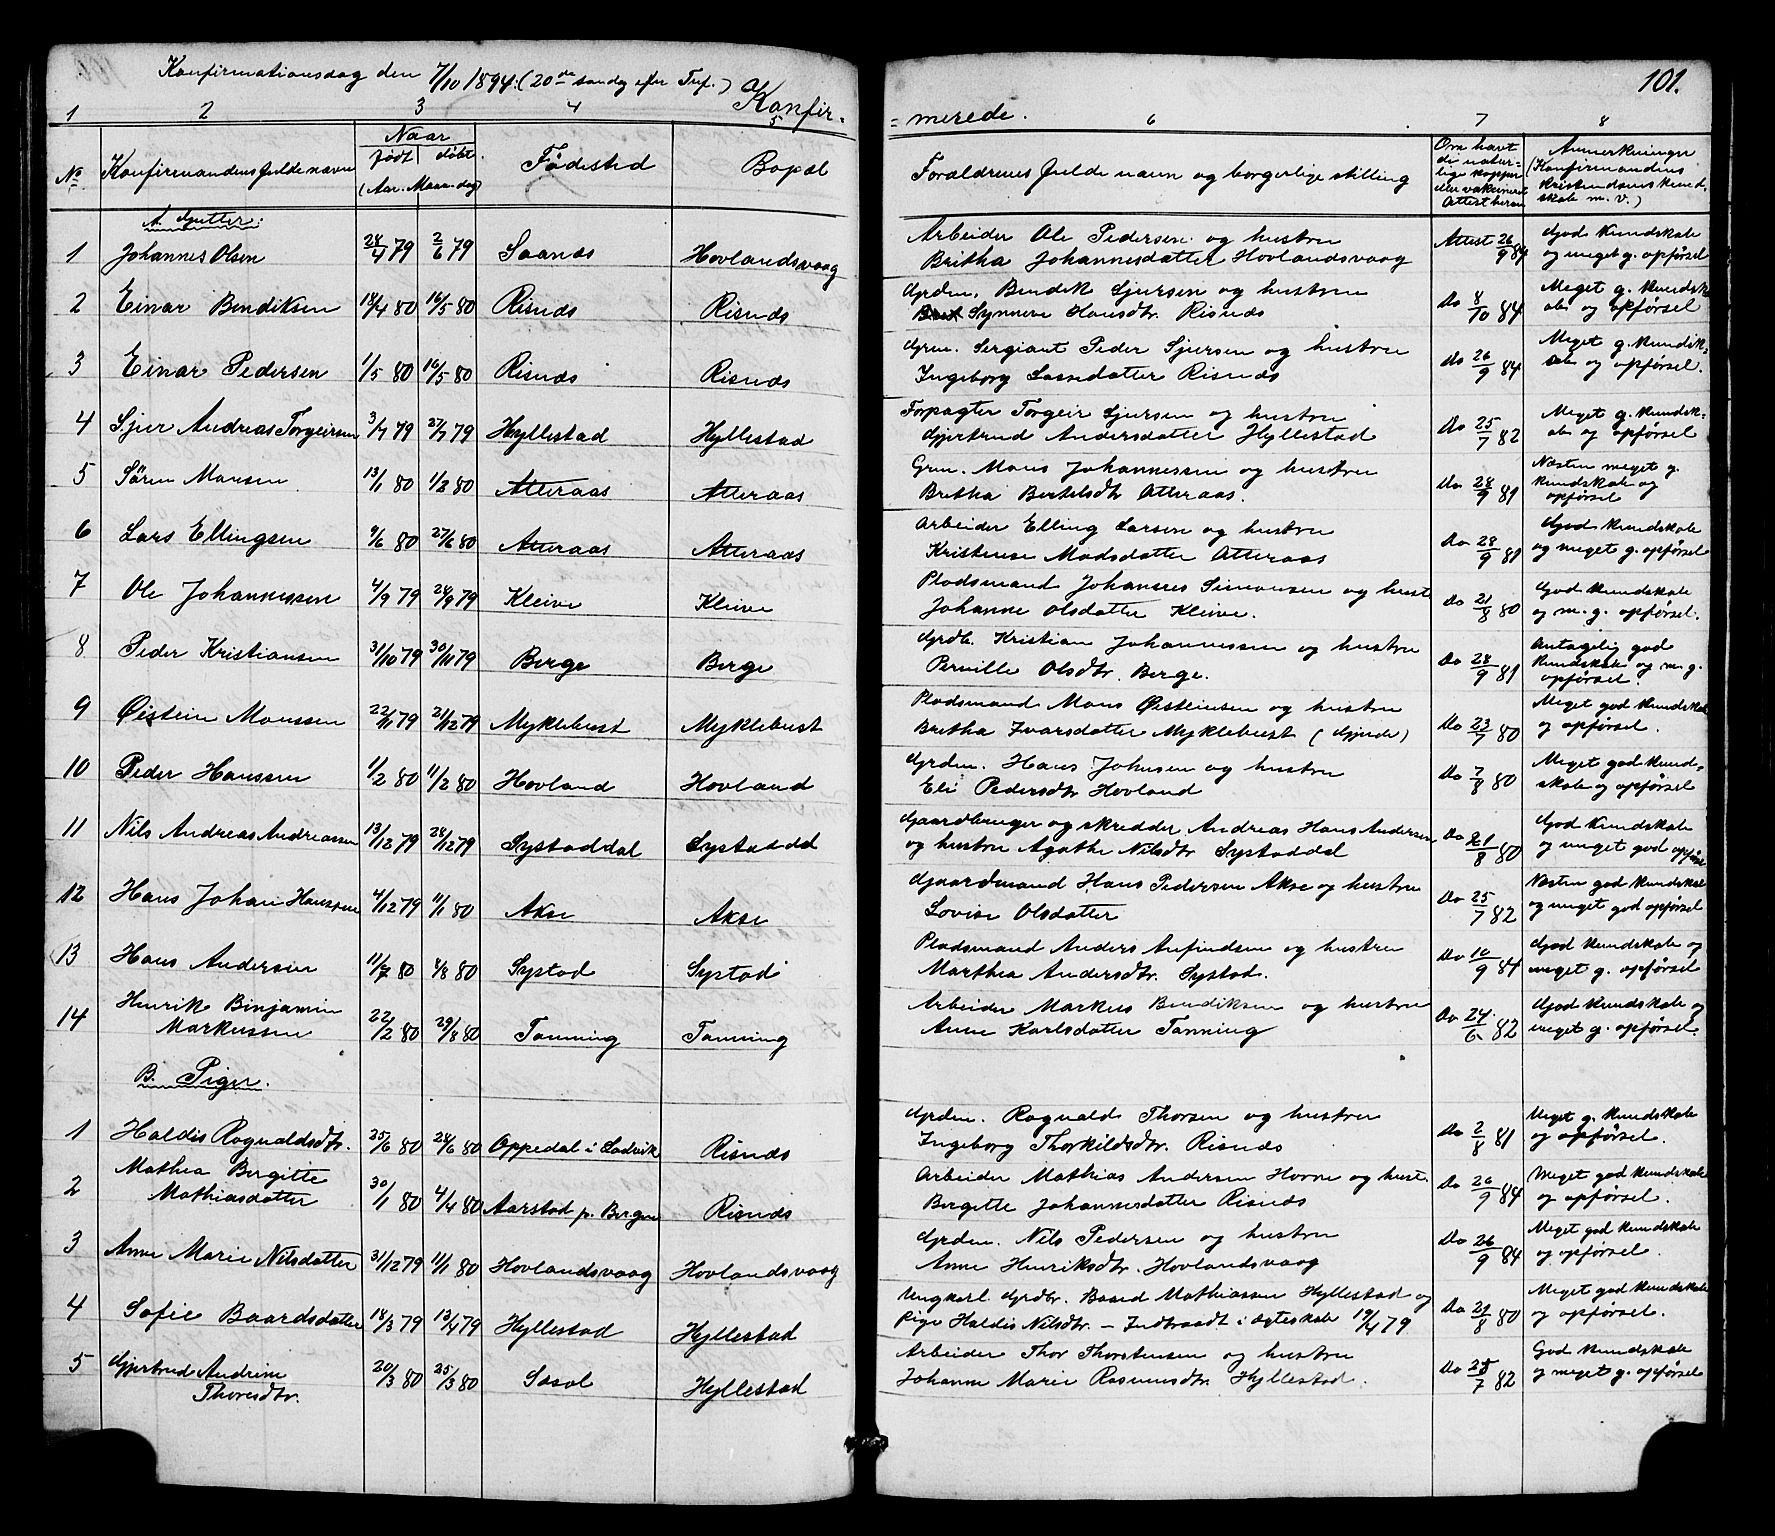 Konfirmationsdag den 7/10 1894. (20de søndag efter Tref.)
101.
Konfir-
=merede.
1 2 3 4 5 6 7 8
No Konfirmandens fulde navn Naar født døbt (Aar. Maan. dag) Fødested Bopæl Forældrenes fulde navn og borgerlige stilling Om havt de naturlige kopper eller vakcineret Attest herom Anmerkninger (Konfirmandens kristendomskundskab m. v.)
A. Gutter:
1 Johannes Olsen 28/4 79 2/6 79 Saands Hovlandsvaag Arbeider Ole Pedersen og hustru Attest 26/9 84 God kundskab
Britha Johannesdatter Hovlandsvaag og meget g. opførsel
2 Einar Bendiksen 18/4 80 16/5 80 Risnds Risnds Grdm. Bendik Sjursen og hustru Do 8/10 84 Meget g. kundsk
Synneve Hansdtr. Risnds ab og opførsel
3 Einar Pedersen 1/5 80 16/5 80 Risnds Risnds Grm. Sergiant Peder Sjursen og hustru Do 26/9 84 Meget g. kundsk=
Ingeborg Lassedatter Risnds ab og opførsel.
4 Sjur Andreas Torgeirsen 3/7 79 27/7 79 Hyllestad Hyllestad Forpagter Torgeir Sjursen og hustru Do 25/7 82 Meget g. kundsk=
Gjertrud Andersdatter Hyllestad ab og opførsel
5 Søren Monsen 13/1 80 1/2 80 Atteraas Atteraas Grm. Mons Johannessen og hustru Do 28/9 81 Næsten meget g.
Britha Bertelsdtr Atteraas. kundskab og
opførsel
6 Lars Ellingsen 9/6 80 27/6 80 Atteraas Atteraas Arbeider Elling Larsen og hustru Do 28/9 81 God kundskab
Kristense Madsdatter Atteraas og meget g. opførsel
7 Ole Johannessen 4/9 79 28/9 79 Kleive Kleive Pladsmand Johannes Simonsen og hust Do 21/8 80 God kundskab
Johanne Olsdatter Kleive. og m. g. opførsel.
8 Peder Kristiansen 31/10 79 30/11 79 Berge Berge Grdb. Kristian Johannessen og hustru Do 28/9 81 Antagelig god
Pernille Olsdtr. Berge. kundskab og m. g.
opførsel.
9 Øistein Monssen 22/11 79 21/12 79 Myklebust Myklebust Pladsmand Mons Øisteinsen og hustru Do 23/7 80 Meget god kundskab
Britha Ivarsdatter Myklebust (Gjerde) og opførsel.
10 Peder Hanssen 1/2 80 11/2 80 Hovland Hovland Grdm. Hans Johnsen og hustru Do 7/8 80 Meget god kund=
Eli Pedersdtr Hovland skab og opførsel
11 Nils Andreas Andreassen 13/12 79 28/12 79 Systaddal Systaddal Gaardbruger og skredder Andreas Hans Andersen Do 21/8 80 God kundskab
og hustru Agathe Nilsdtr. Systaddal og meget god opførsel
12 Hans Johan Hanssen 4/12 79 11/1 80 Akse Akse Gaardmand Hans Pedersen Akse og hustru Do 25/7 82 Næsten god kundskab
Lovise Olsdatter og meget god opførsel
13 Hans Andersen 11/7 80 4/8 80 Systad Systad Pladsmand Anders Anfindsen og hustru Do 10/9 84 God kundskab og
Marthea Andersdtr. Systad. meget g. opførsel
14 Henrik Benjamin 22/2 80 29/8 80 Tanning Tanning Arbeider Markus Bendiksen og hustru Do 24/6 82 God kundskab og
Markussen Anne Karlsdatter Tanning meget g. opførsel.
B. Piger.
1 Haldis Rognaldsdtr. 25/6 80 28/6 80 Oppedal i Ladvik Risnds Grdm. Rognald Thorsen og hustru Do 2/8 81 Meget g. kundskab
Ingeborg Thorkildsdtr. Risnds og opførsel.
2 Mathea Bergitte 30/1 80 4/4 80 Aarstad p. Bergen Risnds Arbeider Mathias Andersen Hovne og hust. Do 26/9 84 Meget god kundskab
Mathiasdatter Bergitte Johannesdatter Risnds og opførsel.
3 Anne Marie Nilsdatter 31/12 79 11/1 80 Hovlandsvaag Hovlandsvaag Grdm. Nils Pedersen og hustru Do 26/9 84 Meget god kundskab
Anne Henriksdtr. Hovlandsvaag og opførsel.
4 Sofie Baardsdatter 18/3 79 13/4 79 Hyllestad Hyllestad Ungkarl Grdbr. Baard Mathiassen Hyllestad og Do 21/8 80 Meget god kundskab
Pige Haldis Nilsdtr. – Indtraadt i ægteskab 19/4 79 og opførsel.
5 Gjertrud Andrine 20/3 80 25/3 80 Sæsol Hyllestad Arbeider Thor Thorstensen og hustru Do 25/7 82 God kundskab
Thorsdtr. Johanne Marie Rasmusdtr. Hyllestad. og meget g. opførsel